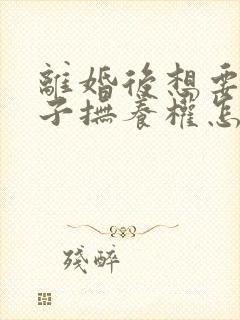 離婚後想要
子撫養權怎
殘醉